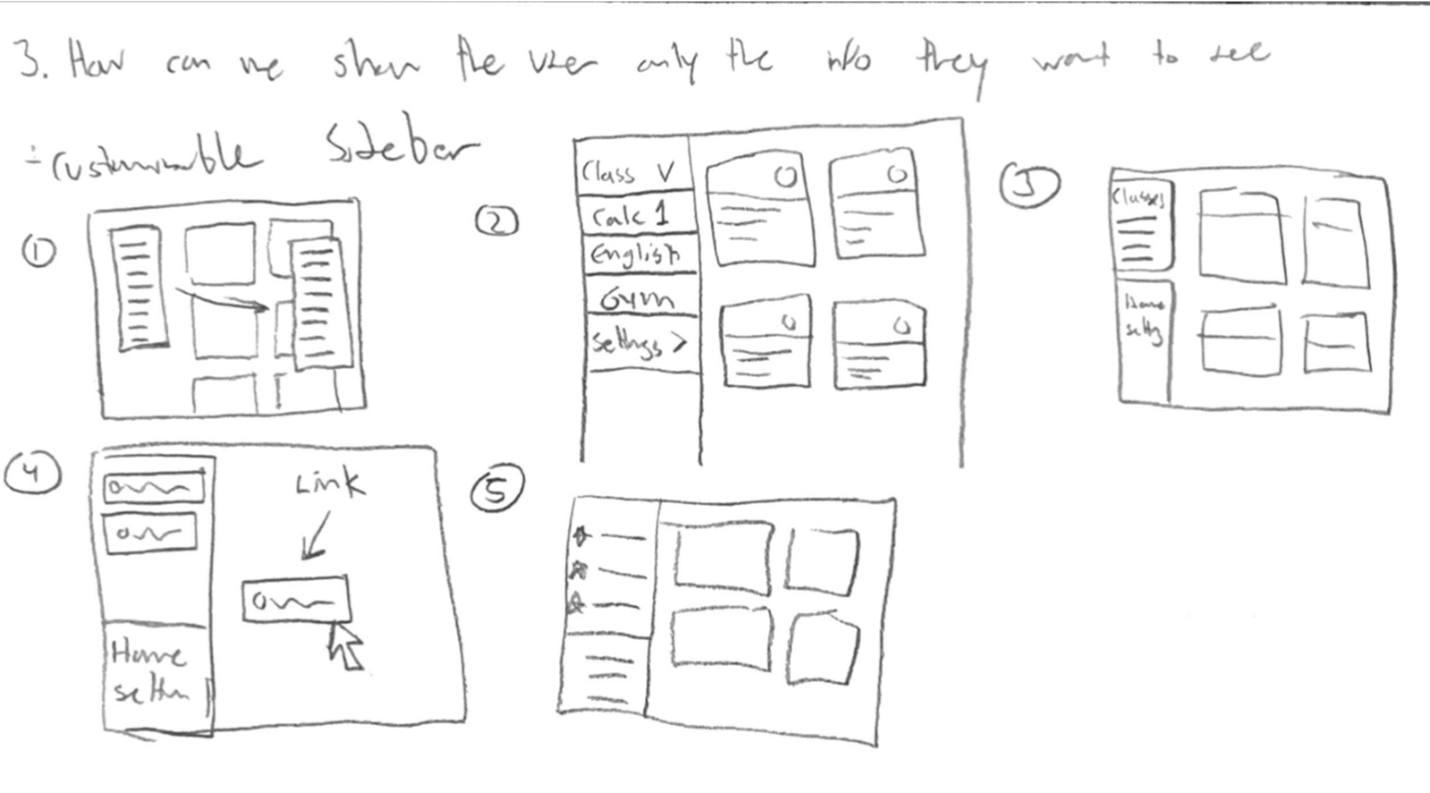 3. How can we show the user only the info they want to see
- Customizable Sidebar
①
②
Class V
Calc 1
English
Gym
settings >
③
Classes
Home
settg
④
Link
Home
settn
⑤